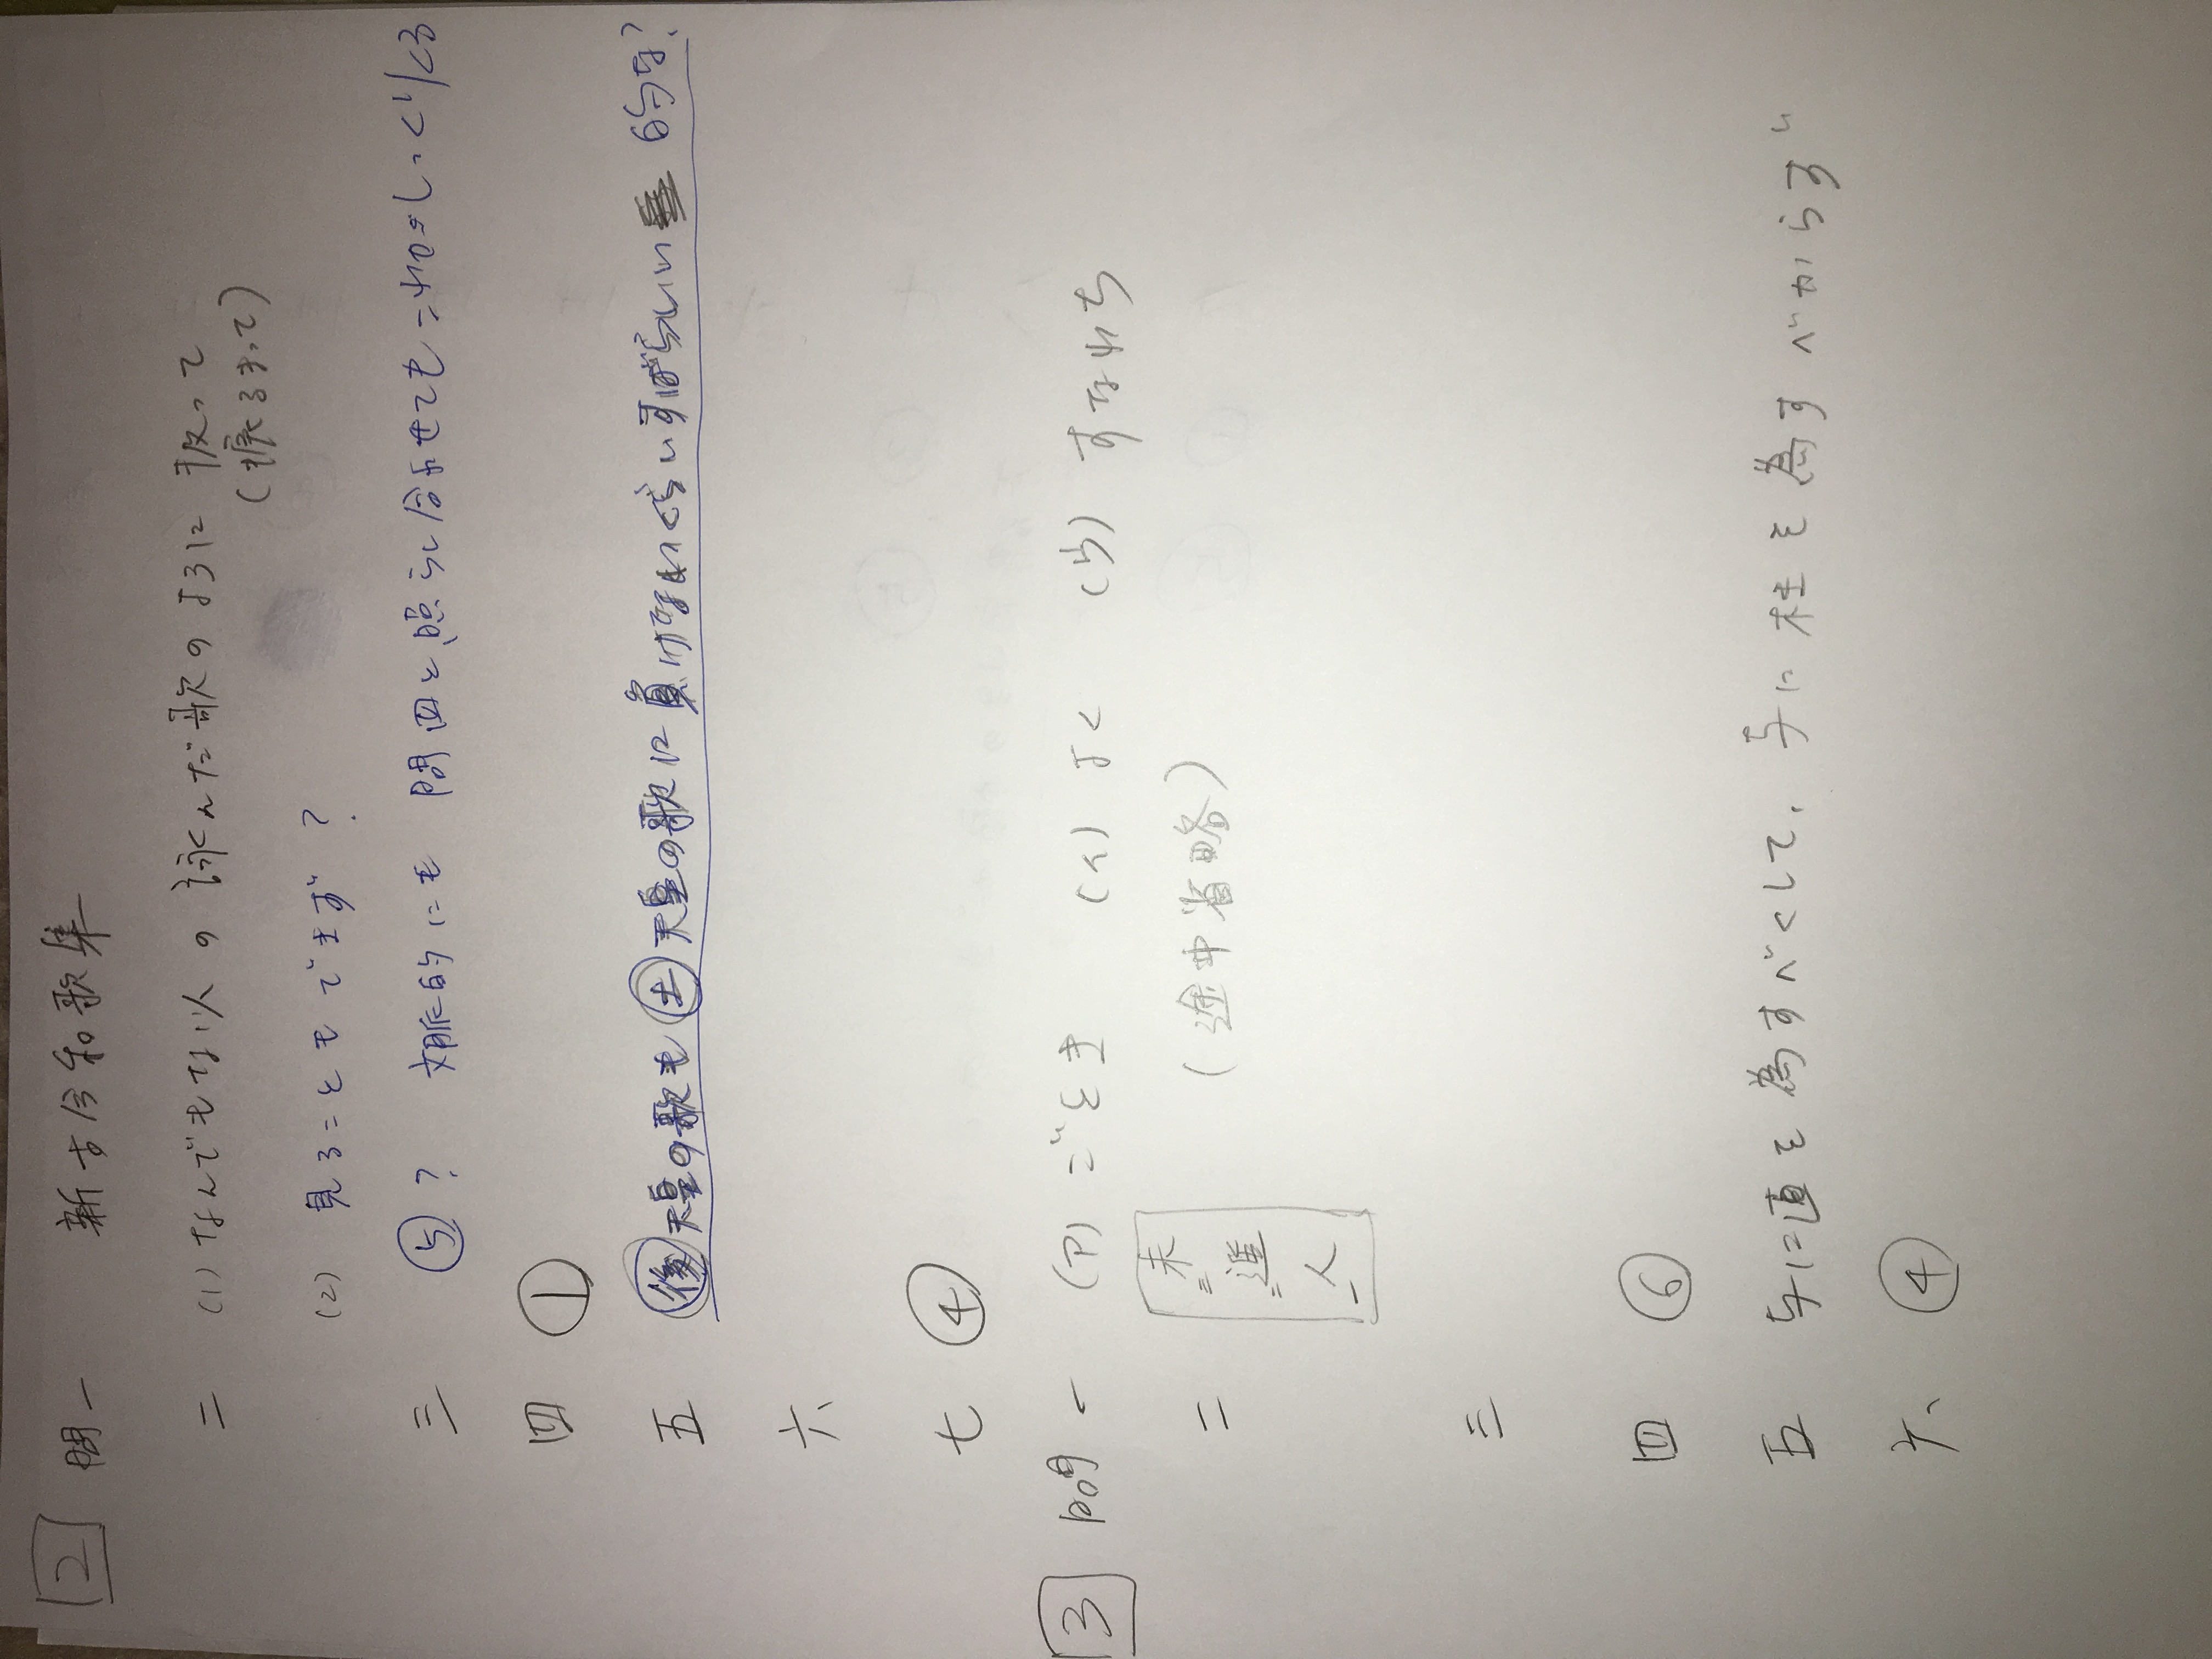 2 問一 新古今和歌集
二 (1) なんでもない人の詠んだ歌のように扱って
(振るまって)
(2) 見ることもできず?
三 ⑤? 文脈的にも 問四と照らし合わせても
四 ①
五 後 天皇の歌も 土 天皇の歌に負けないくらいすばらしい 的な?
六、
七 ④
3 問一 (ア) ごとき (イ) よく (ウ) すなわち
二 未二 進二 人一 (途中省略)
三
四 ⑥
五 与に直を為すべくして、与に枉を為すべからず
六、 ④